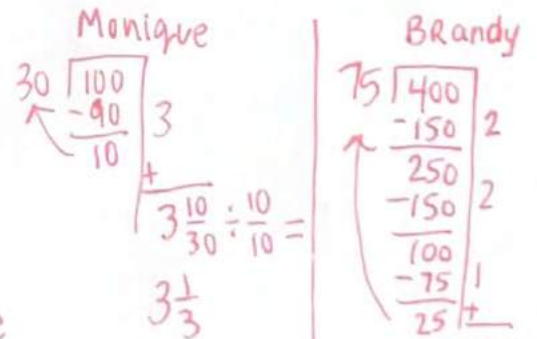 Monique
30 100
-90 3
10
+
3 10/30 ÷ 10/10 =
3 1/3
e
BRandy
75 400
-150 2
250
-150 2
100
-75 1
25 +